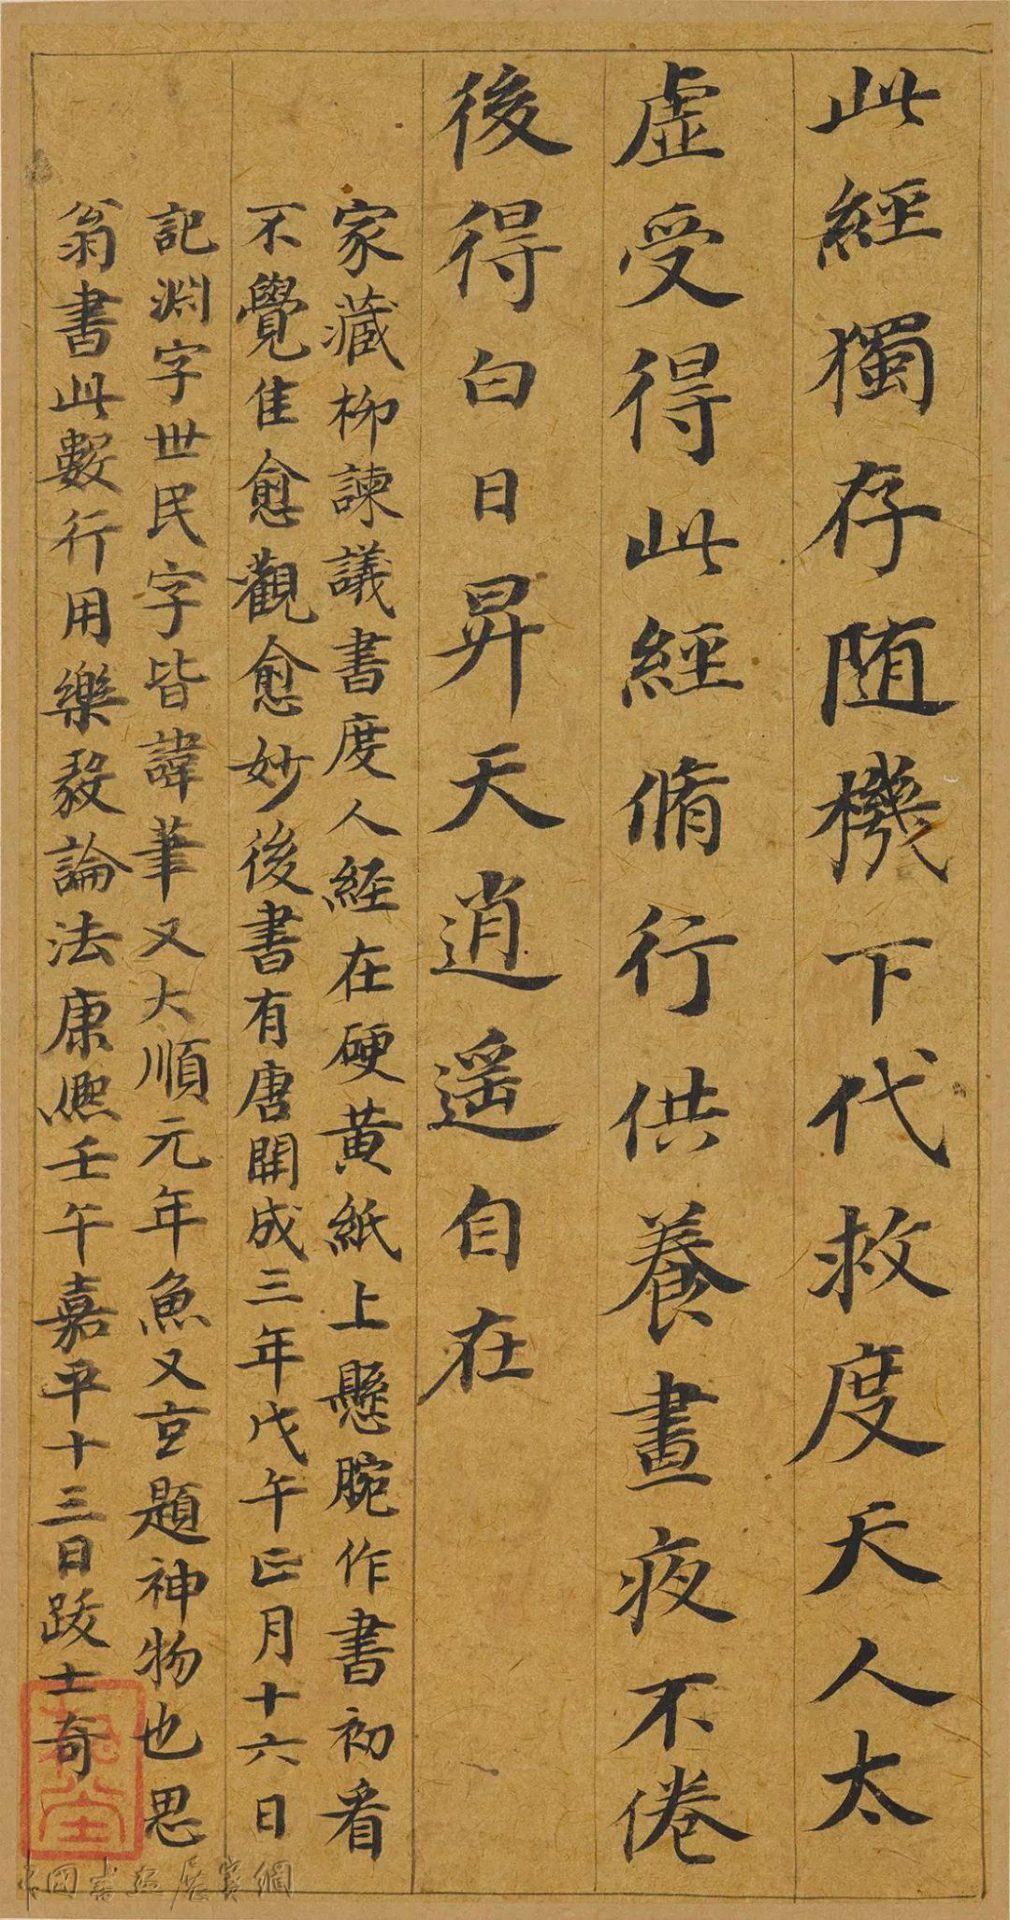 此經獨存随機下代救度天人太
虛受得此經脩行供養晝夜不倦
後得白日昇天逍遥自在
家藏柳諫議書度人經在硬黃紙上懸腕作書初看
不覺佳愈觀愈妙後書有唐開成三年戊午正月十六日
記淵字世民字皆諱筆又大順元年魚又玄題神物也思
翁書此數行用樂毅論法康熙壬午嘉平十三日跋士奇